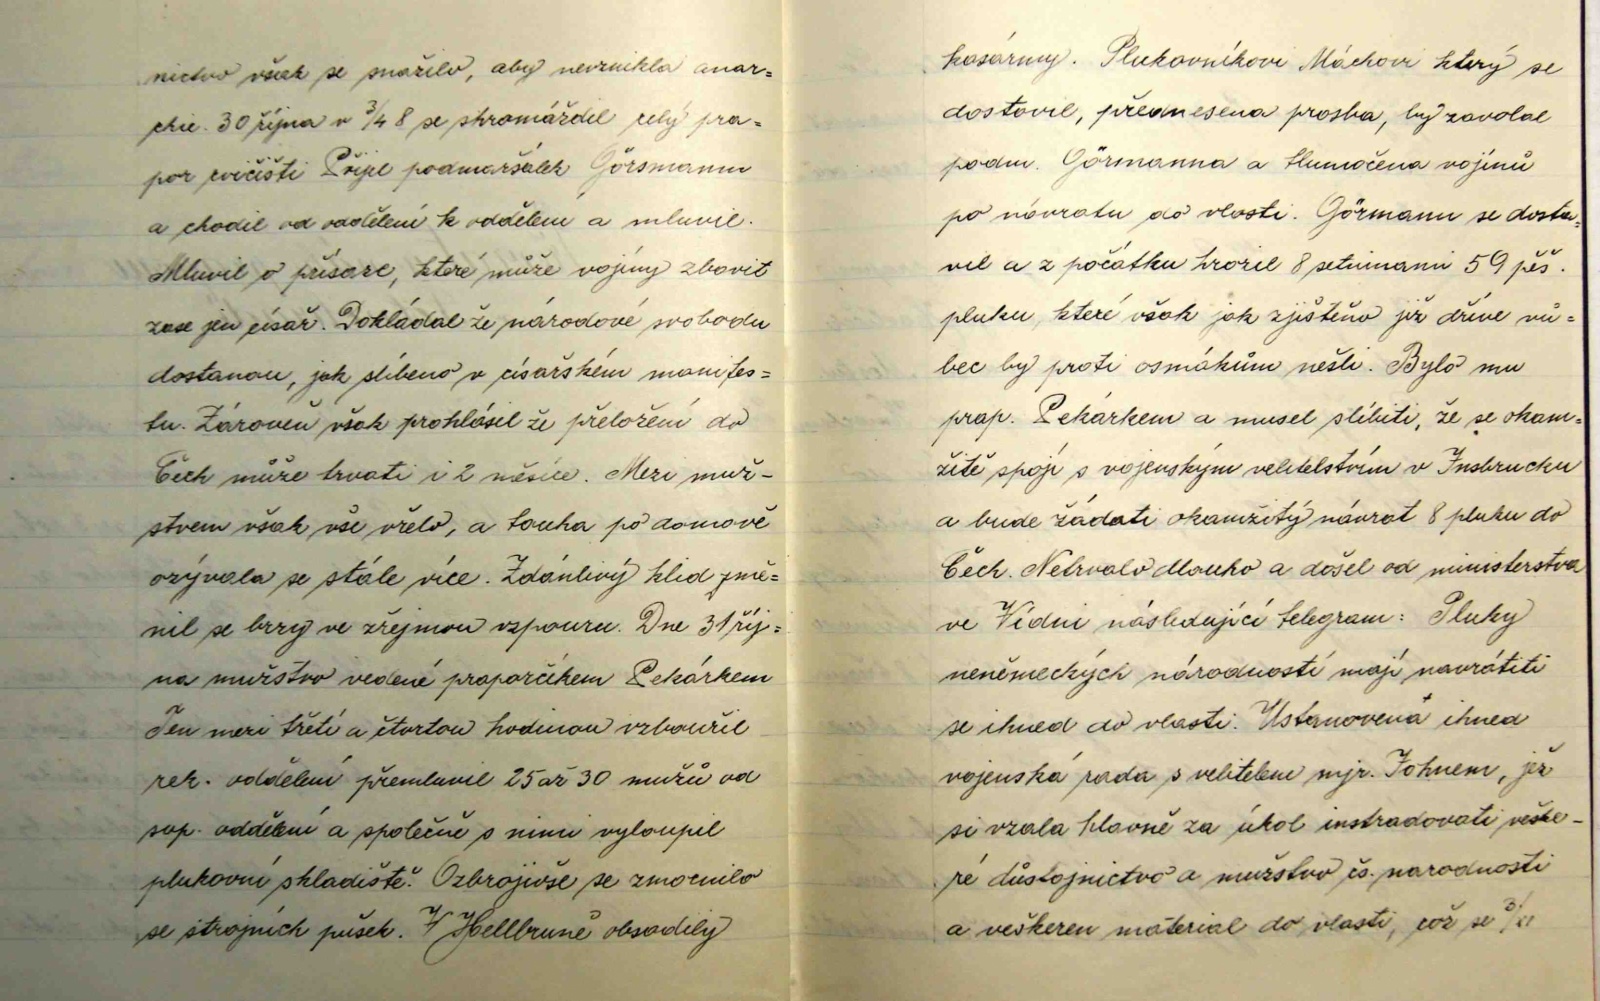 nictvo však se snažilo, aby nevznikla anar=
chie. 30 října v 3/4 8 se shromáždil celý pra=
por cvičišti Přijel podmaršálek Görsmann
a chodil od oddělení k oddělení a mluvil.
Mluvil o přísaze, které může vojíny zbavit
zase jen císař. Dokládal že národové svobodu
dostanou, jak slíbeno v císařském manifes=
tu. Zároveň však prohlásil že přeložení do
Čech může trvati i 2 měsíce. Mezi muž-
stvem však vše vřelo, a touha po domově
ozývala se stále více. Zdánlivý klid změ=
nil se brzy ve zřejmou vzpouru. Dne 31 říj=
na mužstvo vedené praporčíkem Pekárkem
Ten mezi třetí a čtvrtou hodinou vzbouřil
rek. oddělení přemluvil 25 až 30 mužů od
sap. oddělení a společně s nimi vyloupil
plukovní skladiště. Ozbrojivše se zmocnilo
se strojních pušek. V Hellbruně obsadily
kasárny. Plukovníkovi Máchovi který se
dostavil, přednesena prosba, by zavolal
podm. Görmanna a tlumočena vojínů
po návratu do vlasti. Görmann se dosta=
vil a z počátku hrozil 8 setninami 59 pěš.
pluku, které však jak zjištěno již dříve vů=
bec by proti osmákům nešli. Bylo mu
prap. Pekárkem a musel slíbiti, že se okam=
žitě spojí s vojenským velitelstvím v Insbrucku
a bude žádati okamžitý návrat 8 pluku do
Čech. Netrvalo dlouho a došel od ministerstva
ve Vídni následující telegram: Pluky
neněmeckých národností mají navrátiti
se ihned do vlasti. Ustanovená ihned
vojenská rada s velitelem mjr. Johnem, jež
si vzala hlavně za úkol instradovati veške-
ré důstojnictvo a mužstvo čs. narodnosti
a veškeren materiál do vlasti, což se 3/XI